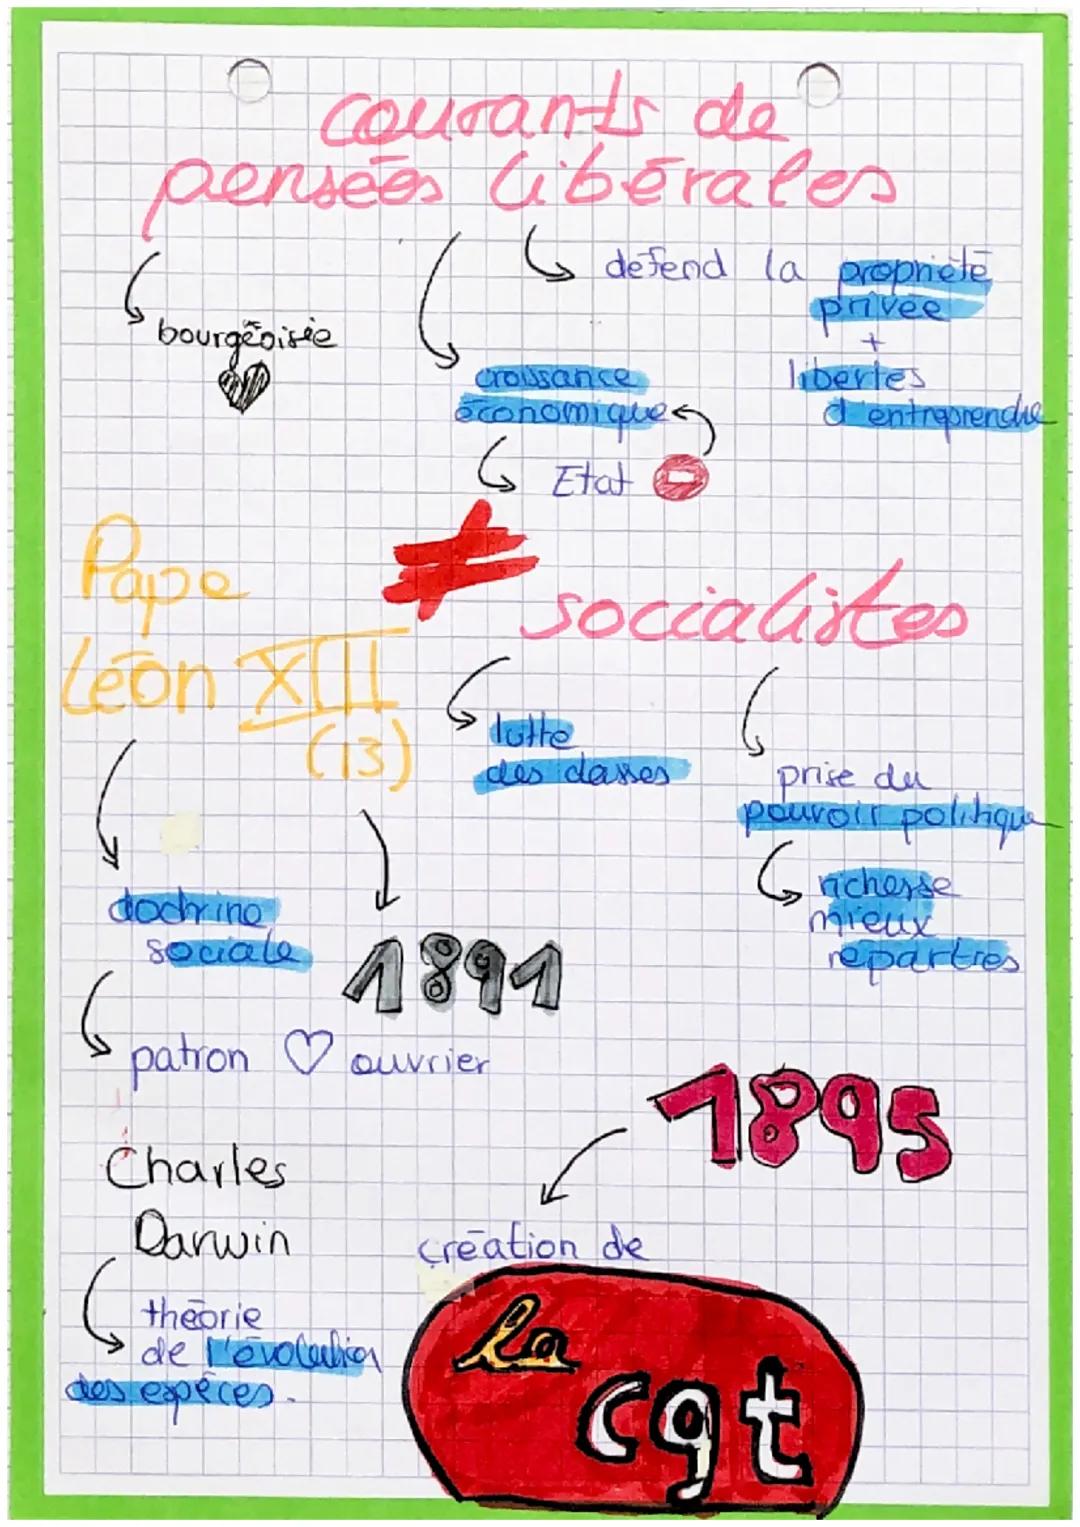 courants de
pensées libérales
défend la propriété
privée
+
libertés
d'entreprendre
bourgeoisie
croissance
économique
Etat
≠
socialistes
Pape
Léon XIII
(13)
lutte
des classes
prise du
pouvoir politique
richesse
mieux
repartres
doctrine
sociale
1891
patron ♡ ouvrier
1895
création de
la
cgt
Charles
Darwin
théorie
de l'évolution
des espèces.